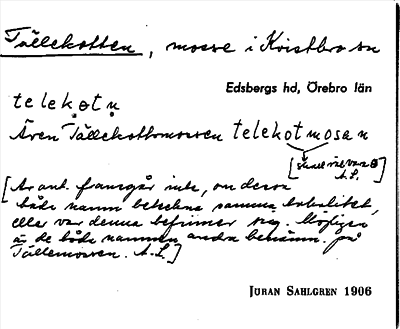 Tällekotten, mosse i Kvistbro sn
Edsbergs hd, Örebro län
telekotn
Även Tällekottmossen telekotmosan
[skall väl vara
A.L.]
[Av ant. framgår inte, om dessa
båda namn beteckna samma lokalitet,
eller var denna befinner sig. Möjligen
är de båda namnen andra benämn. på
Tällemossen. A.L.]
JÖRAN SAHLGREN 1906